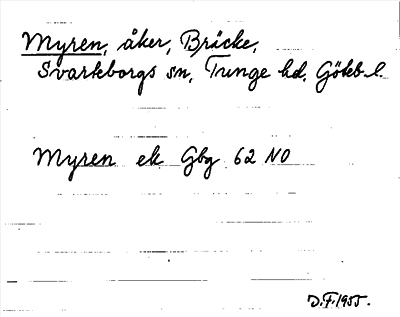 Myren, åker, Bräcke,
Svarteborgs sn, Tunge hd, Göteb. l.
Myren ek Gbg 62 NO
D.F. 1955.